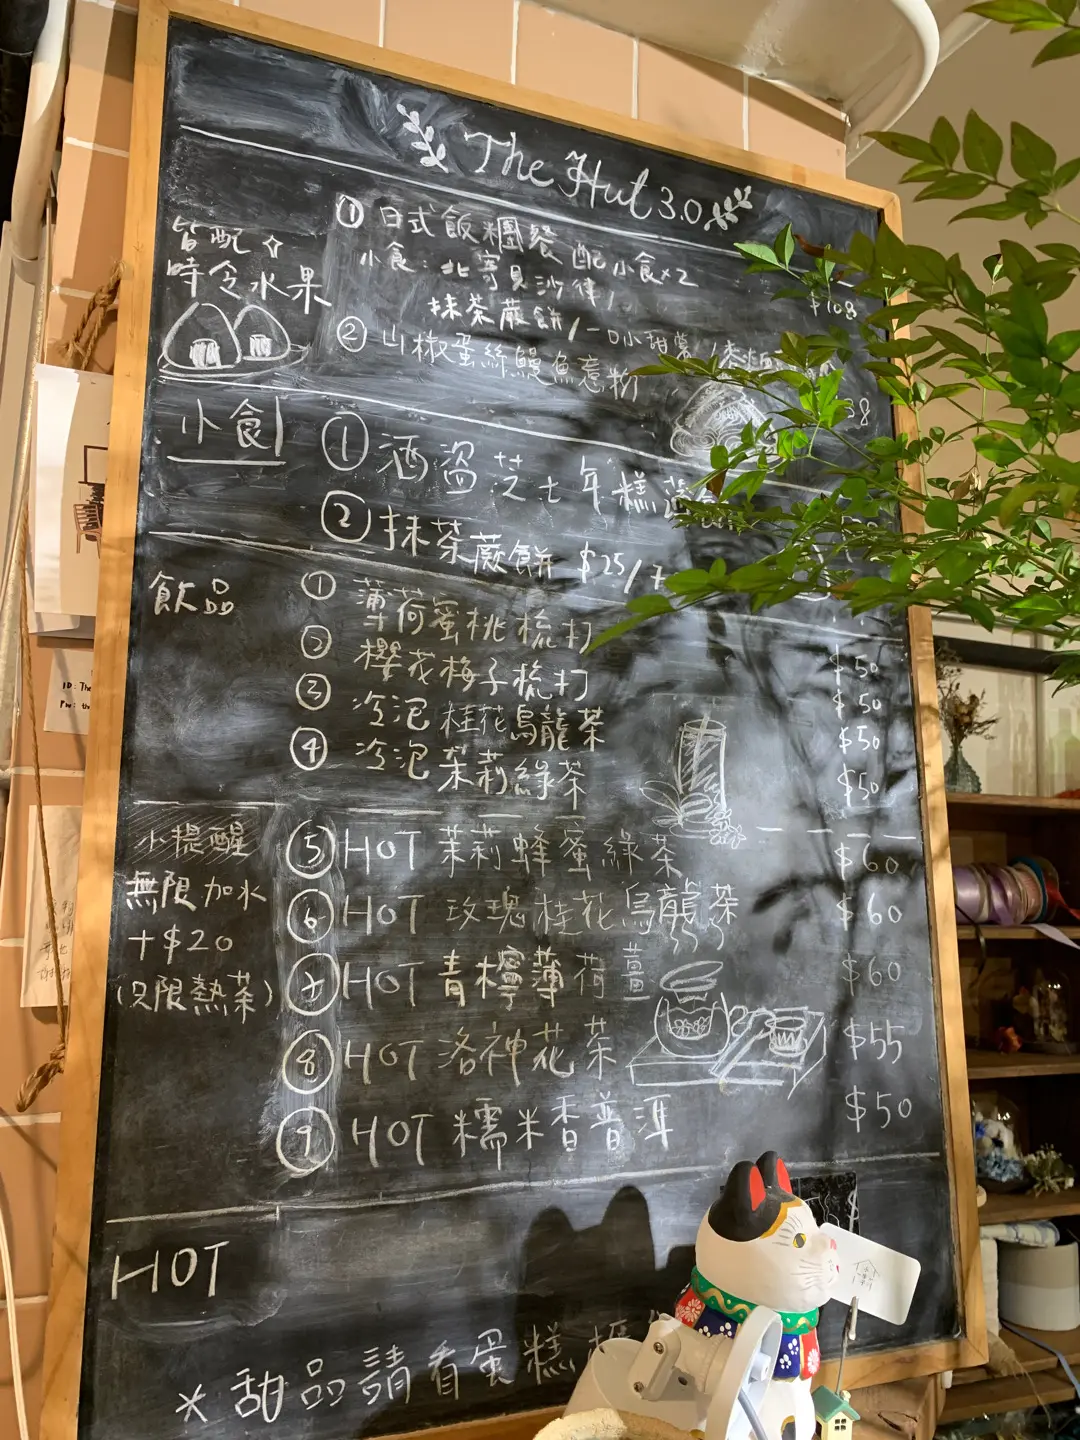 The Hut 3.0
皆配
時令水果
① 日式飯糰餐 配小食x2
$108
小食: 北寄貝沙律/
抹茶蕨餅/一口小甜
② 山椒蛋絲鰻魚意粉
8
小食
① 酒盞芝士年糕
② 抹茶蕨餅 $25/
飲品
① 薄荷蜜桃梳打 $50
② 櫻花梅子梳打 $50
③ 冷泡 桂花烏龍茶 $50
④ 冷泡 茉莉綠茶 $50
小提醒
無限加水
+$20
(只限熱茶)
⑤ HOT 茉莉蜂蜜綠茶 $60
⑥ HOT 玫瑰桂花烏龍茶 $60
⑦ HOT 青檸薄荷薑 $60
⑧ HOT 洛神花茶 $55
⑨ HOT 糯米香普洱 $50
HOT
* 甜品請看蛋糕